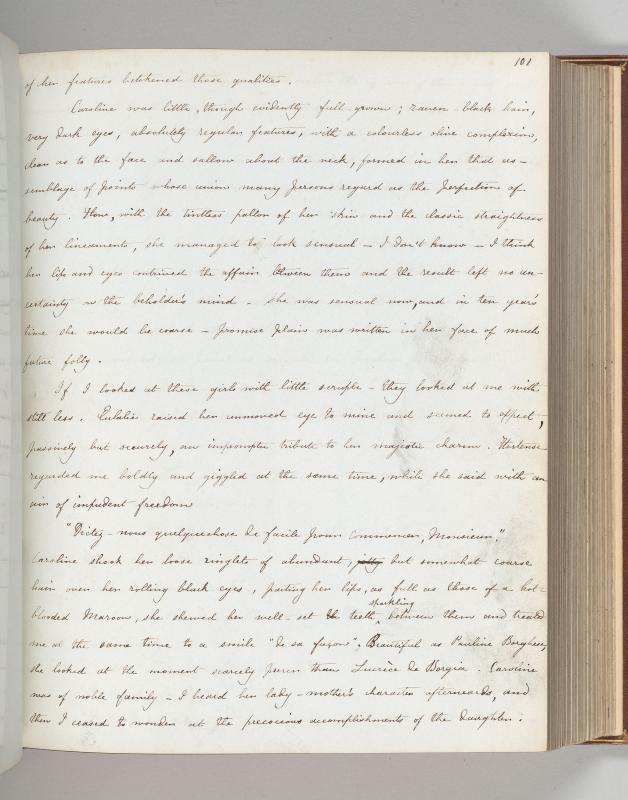 101
of her features betokened those qualities.
Caroline was little, though evidently full-grown; raven-black hair,
very dark eyes, absolutely regular features, with a colourless olive complexion,
clear as to the face and sallow about the neck, formed in her that as-
semblage of points whose union many persons regard as the perfection of
beauty. How, with the tintless pallor of her skin and the classic straightness
of her lineaments, she managed to look sensual – I don't know – I think
her lips and eyes contrived the affair between them and the result left no un-
certainty in the beholder's mind – She was sensual now, and in ten year's
time she would be coarse – promise plain was written in her face of much
future folly.
If I looked at these girls with little scruple – they looked at me with
still less. Eulalie raised her unmoved eye to mine and seemed to expect,
passively but securely, an impromptu tribute to her majestic charms. Hortense
regarded me boldly and giggled at the same time, while she said with an
air of impudent freedom
"Dictez-nous quelquechose de facile pour commencer, Monsieur".
Caroline shook her loose ringlets of abundant, but somewhat coarse
hair over her rolling black eyes, parting her lips, as full as those of a hot-
blooded Maroon, she shewed her well-set sparkling teeth, between them and treated
me at the same time to a smile "de sa façon". Beautiful as Pauline Borghese,
she looked at the moment scarcely purer than Lucrèce de Borgia. Caroline
was of noble family – I heard her lady-mother's character afterwards, and
then I ceased to wonder at the precocious accomplishments of the daughter.